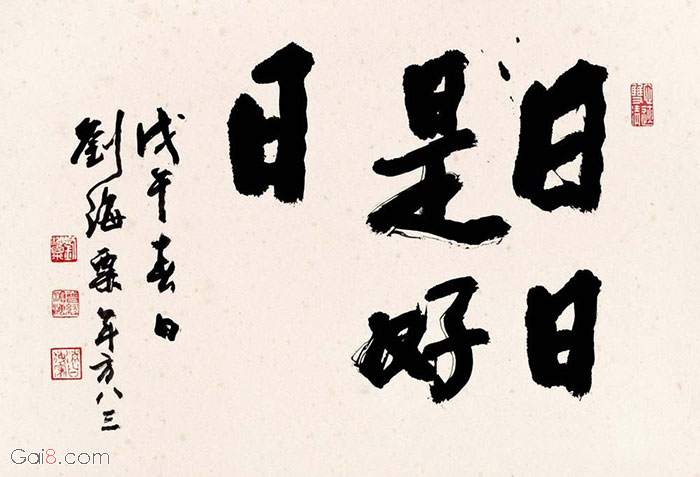 日日
是好
日
戊午春日
劉海粟年方八三
Gai8.com